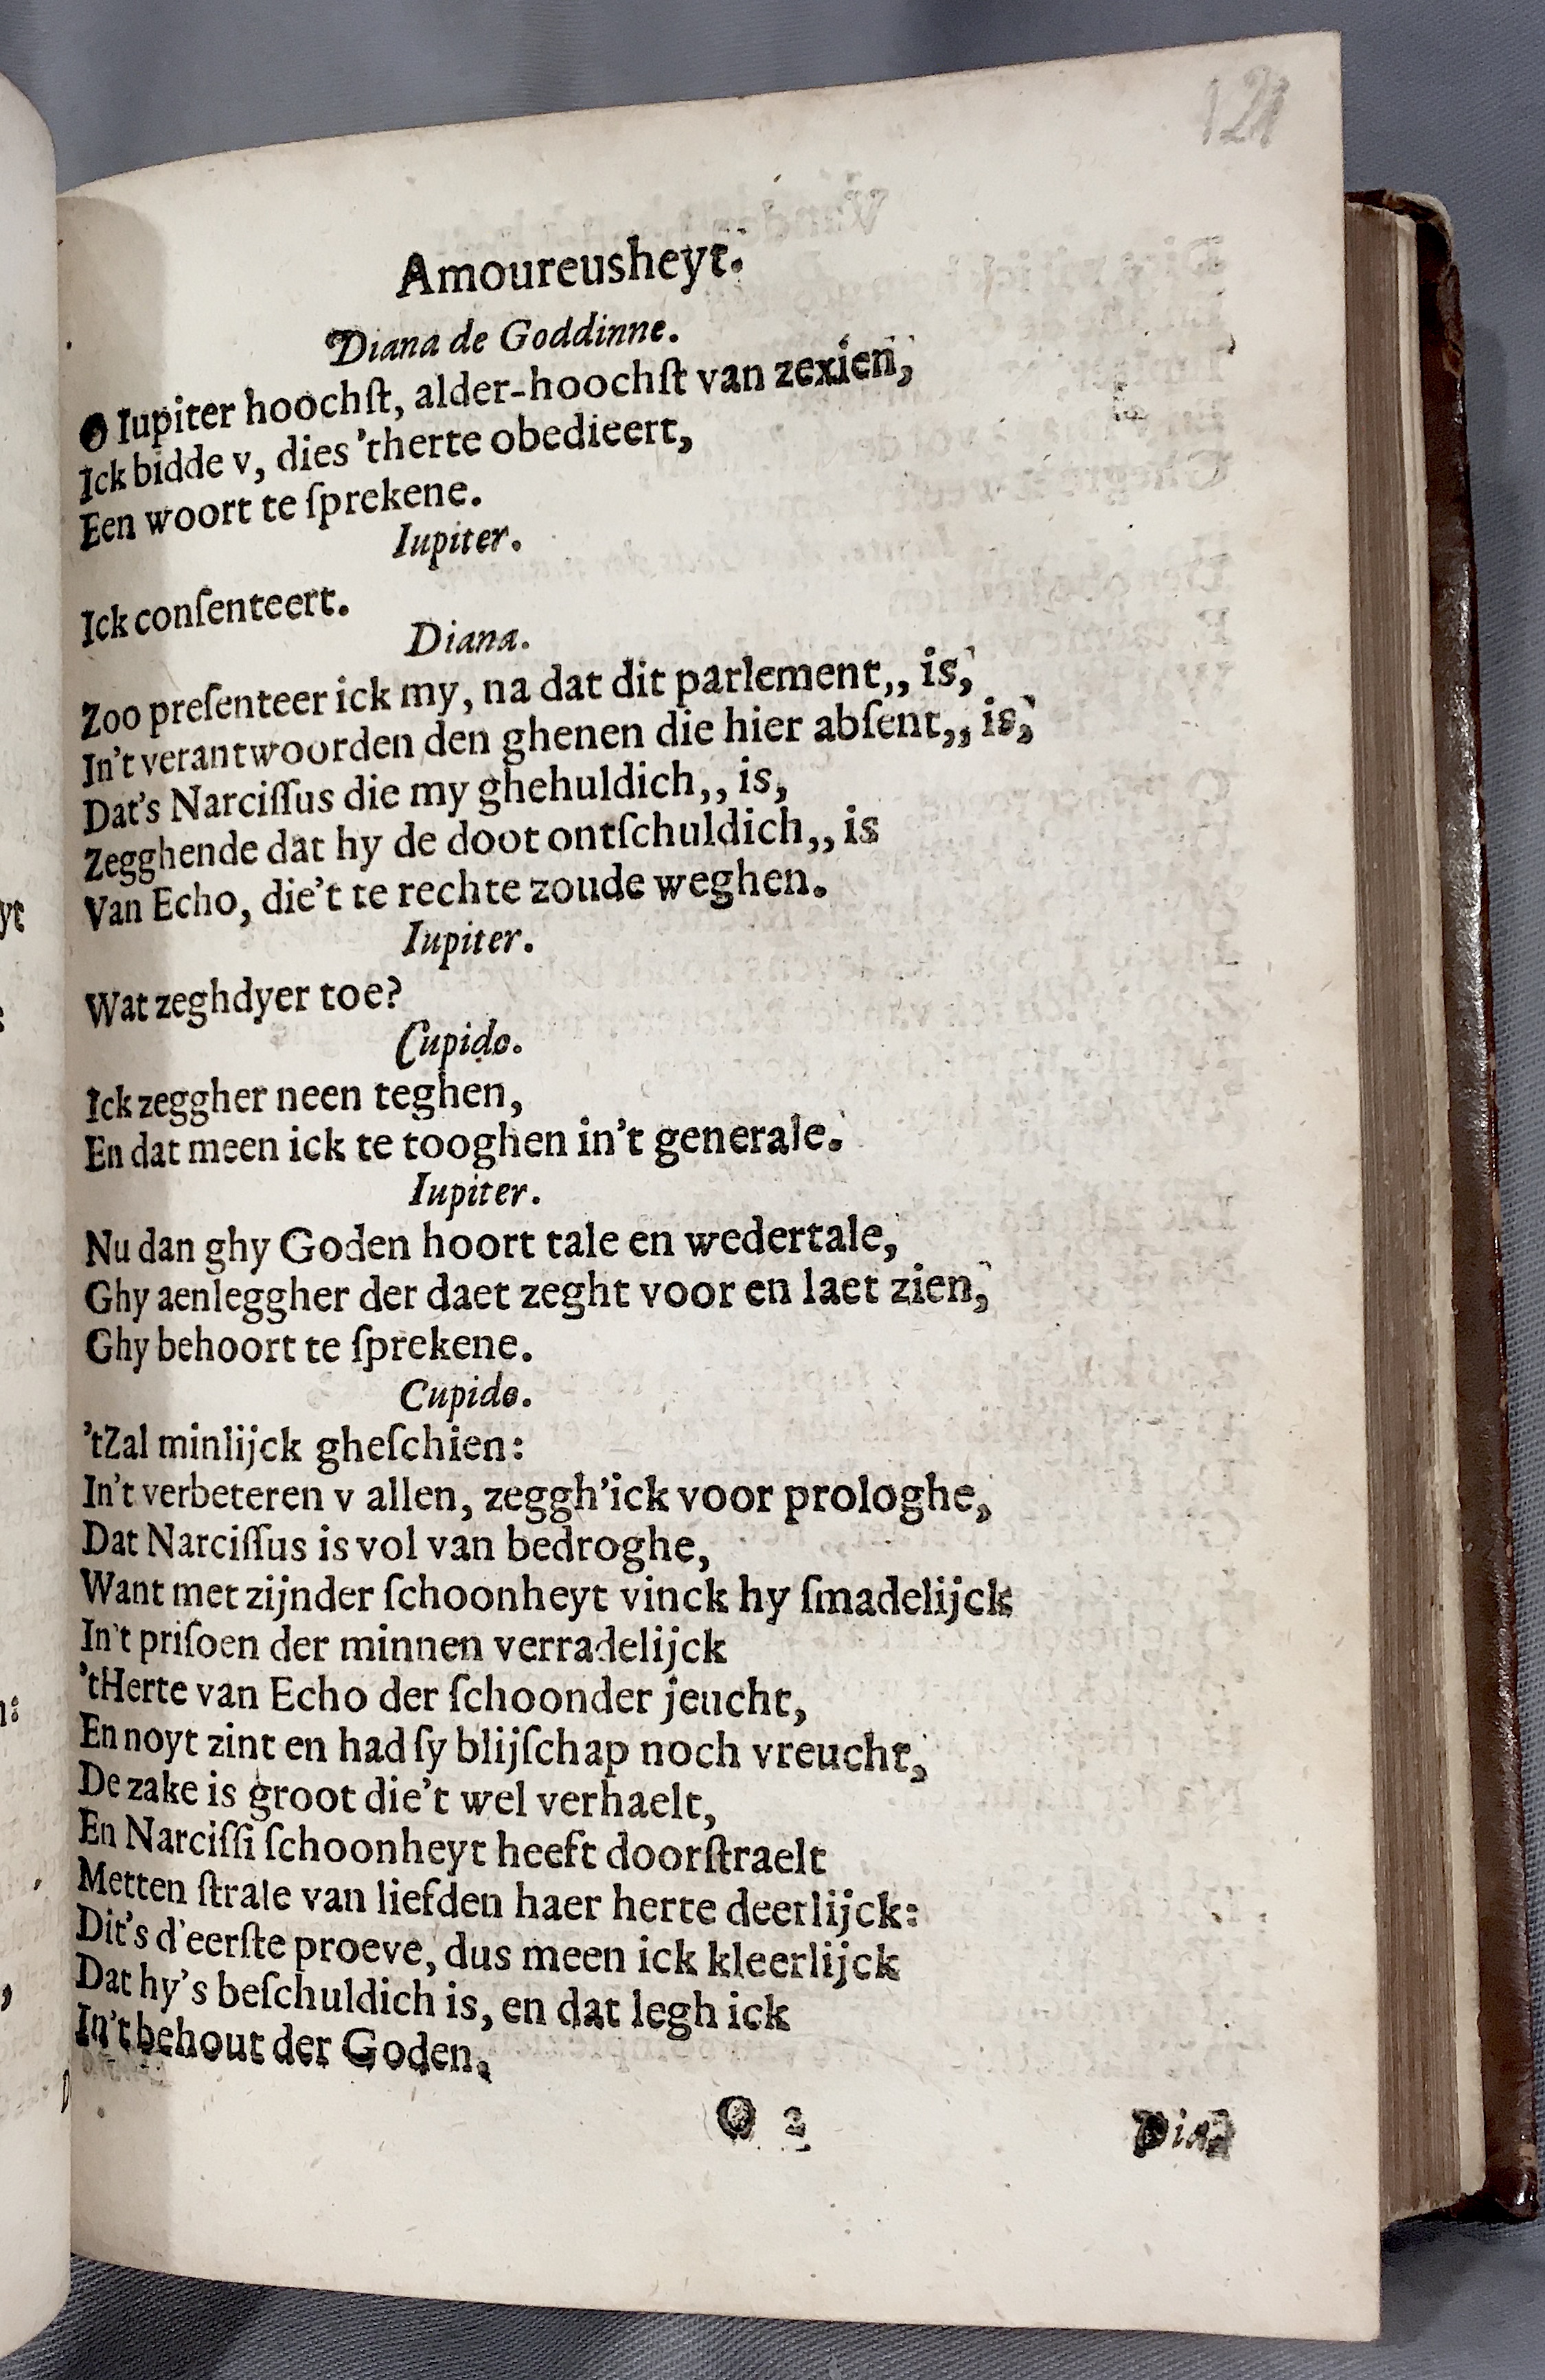 121
Amoureusheyt.
Diana de Goddinne.
O Iupiter hoochſt, alder-hoochſt van zexien,
Ick bidde v, dies 'therte obedieert,
Een woort te ſprekene.
Iupiter.
Ick conſenteert.
Diana.
Zoo preſenteer ick my, na dat dit parlement,, is,
In't verantwoorden den ghenen die hier abſent,, is,
Dat's Narciſſus die my ghehuldich,, is,
Zegghende dat hy de doot ontſchuldich,, is
Van Echo, die't te rechte zoude weghen.
Iupiter.
Wat zeghdyer toe?
Cupido.
Ick zeggher neen teghen,
En dat meen ick te tooghen in't generale.
Iupiter.
Nu dan ghy Goden hoort tale en wedertale,
Ghy aenleggher der daet zeght voor en laet zien,
Ghy behoort te ſprekene.
Cupido.
'tZal minlijck gheſchien:
In't verbeteren v allen, zeggh'ick voor prologhe,
Dat Narciſſus is vol van bedroghe,
Want met zijnder ſchoonheyt vinck hy ſmadelijck
In't priſoen der minnen verradelijck
'tHerte van Echo der ſchoonder jeucht,
En noyt zint en had ſy blijſchap noch vreucht,
De zake is groot die't wel verhaelt,
En Narciſſi ſchoonheyt heeft doorſtraelt
Metten ſtrale van liefden haer herte deerlijck:
Dit's d'eerſte proeve, dus meen ick kleerlijck
Dat hy's beſchuldich is, en dat legh ick
In't behout der Goden.
Q 2
Dia-